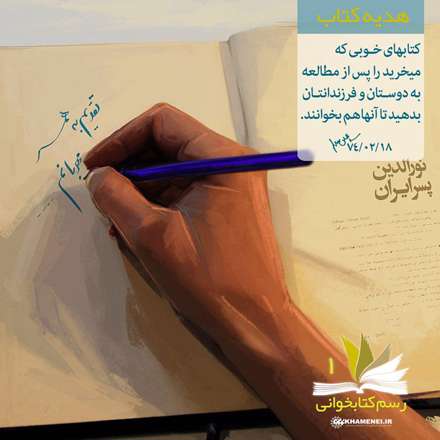 هدیه کتاب
کتابهای خوبی که
میخرید را پس از مطالعه
به دوستان و فرزندانتان
بدهید تا آنها هم بخوانند.
۷۴/۰۲/۱۸
نورالدین
پسر ایران
تقدیم به
۱
رسم کتابخوانی
KHAMENEI.IR